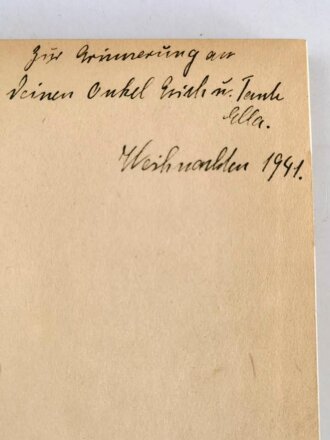 Zur Erinnerung an
Deinen Onkel Erich u. Tante
Ella.
Weihnachten 1941.